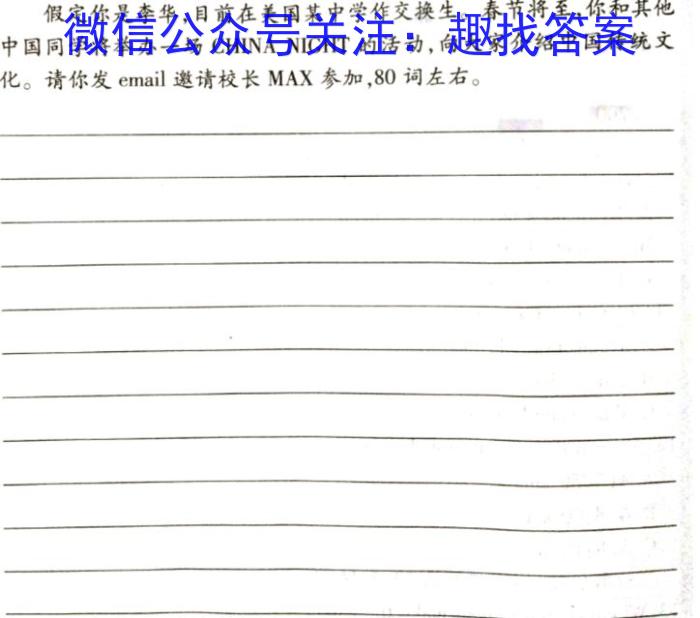 假定你是李华,目前在美国某中学作交换生。春节将至,你和其他
中国同学将举办一场CHINA NIGHT的活动,向大家介绍中国传统文
微信公众号关注：趣找答案
化。请你发 email 邀请校长 MAX 参加,80 词左右。